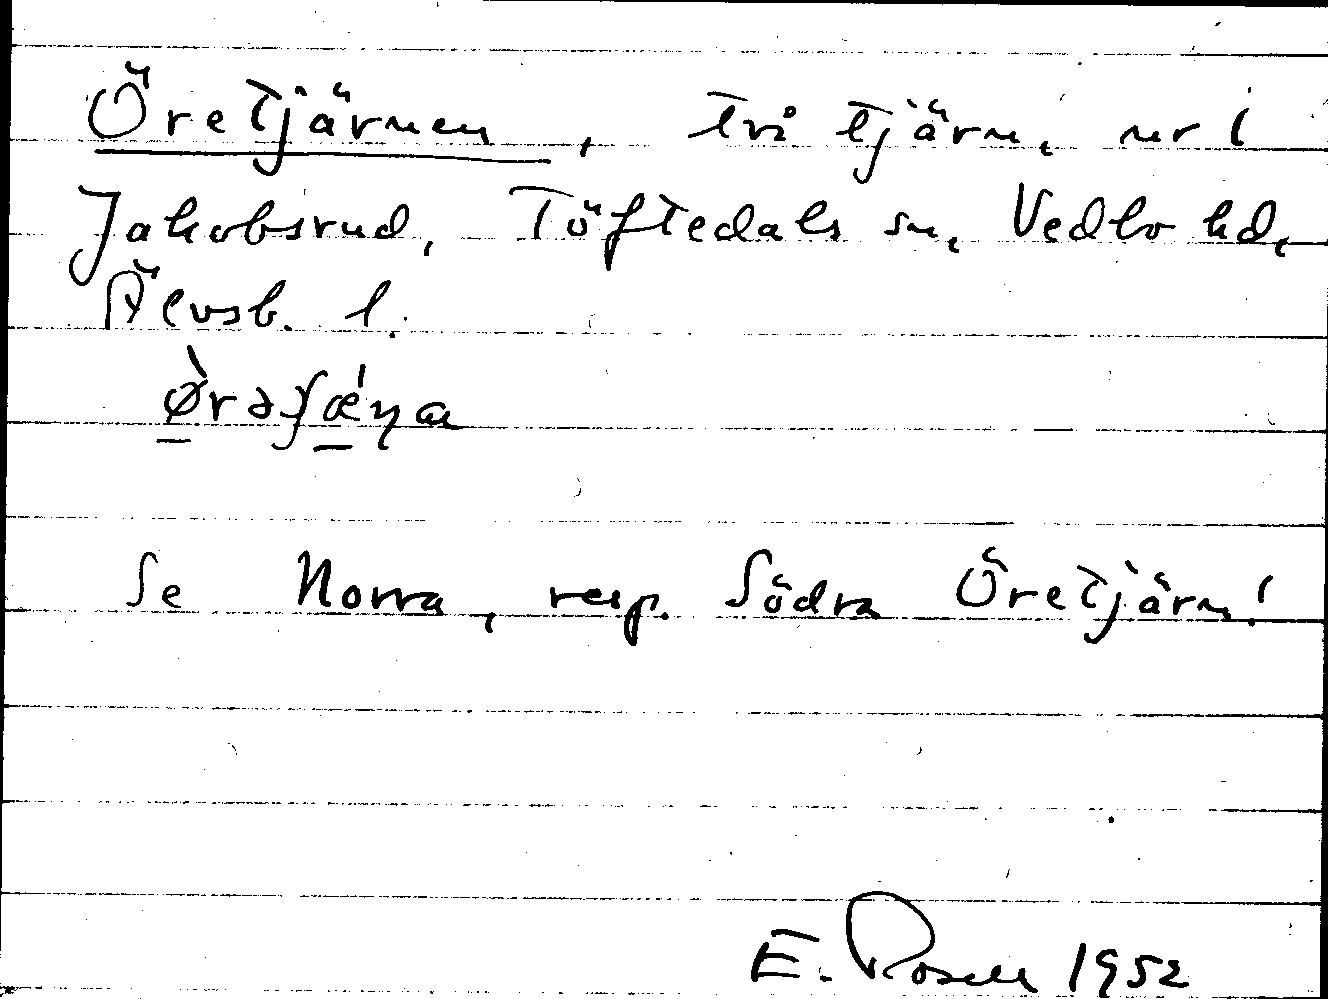 Öretjärnen, två tjärn, nr 1
Jakobsrud, Töftedals sn, Vedbo hd,
Älvsb. l.
Se Norra, resp. Södra Öretjärn!
E. Rosell 1952